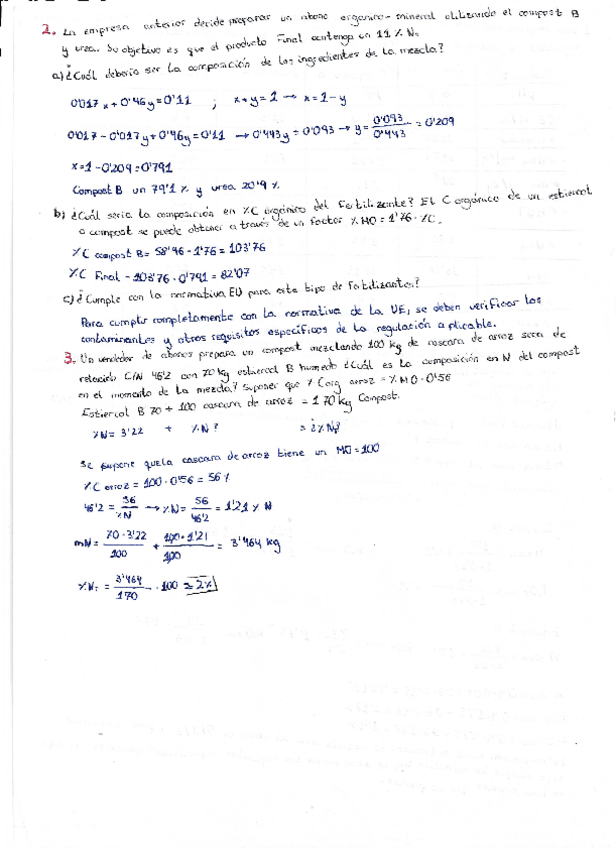 2. La empresa anterior decide preparar un abono organico-mineral utilizando el compost B
y urea. Su objetivo es que el producto final contenga un 11% N.
a) ¿Cuál debería ser la composición de los ingredientes de la mezcla?
0'017x + 0'46y = 0'11 ; x+y=1 → x=1-y
0'017 - 0'017y + 0'46y = 0'11 → 0'443y = 0'093 → y = 0'093/0'443 = 0'209
x = 1 - 0'209 = 0'791
Compost B un 79'1 % y urea 20'9 %.
b) ¿Cuál sería la composición en %C orgánico del fertilizante? El C orgánico de un estiercol
o compost se puede obtener a través de un factor %MO = 1'76 · %C.
%C compost B = 58'96 · 1'76 = 103'76
%C Final = 103'76 · 0'791 = 82'07
c) ¿Cumple con la normativa EU para este tipo de fertilizantes?
Para cumplir completamente con la normativa de la UE, se deben verificar los
contaminantes y otros requisitos específicos de la regulación aplicable.
3. Un vendedor de abonos prepara un compost mezclando 100 kg de cascara de arroz seca de
relación C/N 46'2 con 70 kg estiercol B humedo ¿Cuál es la composición en N del compost
en el momento de la mezcla? Suponer que % Corg arroz = % MO · 0'56
Estiercol B 70 + 100 cascara de arroz = 170 kg Compost.
%N = 3'22 + %N? = ¿%N?
Se supone que la cascara de arroz tiene un MO=100
%C arroz = 100 · 0'56 = 56 %
46'2 = 56/%N → %N = 56/46'2 = 1'21 % N
mN = 70 · 3'22/100 + 100 · 1'21/100 = 3'464 kg
%N = 3'464/170 · 100 = 2%